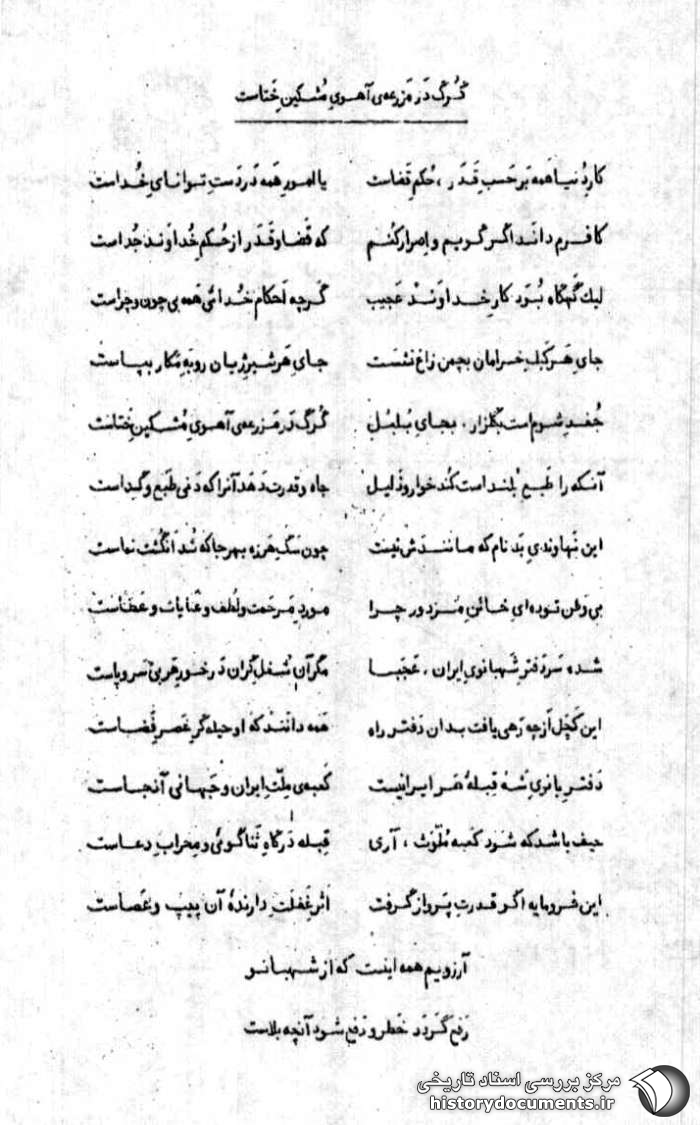 گُرگ دَر مَزرعه‌ی آهویِ مُشکینِ خَتاست
کارِ دُنیا همه بَر حَسبِ قَدَر ، حُکمِ قَضاست یا امور همه دَر دَستِ توانایِ خُداست
کافرم دانَد اگر گویم و اِصرار کُنم که قَضا و قَدَر از حُکمِ خُداوَند جُداست
لیك گَهگاه بُوَد کارِ خداوَند عَجیب گرچه اَحکامِ خُدائی هَمه بی چون و چراست
جای هَر کَبكِ خرامان بچمن زاغ نشست جای هَر شیرِ ژیان روبهِ مَکار بپاست
جُغدِ شوم است بگلزار ، بجایِ بُلبُل گُرگ دَر مَزرعه‌ی آهویِ مُشکینِ خَتاست
آنکه را طَبعِ بُلند است کُند خوار و ذلیل جاه و قدرت دَهَد آنرا که دَنی طَبع و گداست
این نَهاوندیِ بَدنام که مانندَش نیست چون سَگِ هَرزه بهر جا که شُد انگُشت نماست
بی وطن توده‌ایِ خائنِ مُزدور چرا موردِ مَرحمت و لُطف و عنایات و عَطاست
شده سَردفترِ شَهبانوی ایران ، عَجَبا مگر آن شُغلِ گران دَر خورِ هَر بی سَر و پاست
این کَچَل اَز چه رَهی یافت بدان دَفتر راه هَمه دانَند که او حیله گرِ عَصرِ فضاست
دَفترِ بانویِ شَه قِبلهٔ هَر ایرانیست کَعبه‌ی مِلّتِ ایران و جَهانی آنجاست
حیف باشد که شَوَد کَعبه مُلَوَّث ، آری قِبله دَرگاهِ ثَناگوئی و محرابِ دعاست
این فرومایه اگر قدرتِ پَرواز گرفت اَثرِ غَفلتِ دارندهٔ آن پیپ و عَصاست
آرزویم همه اینست که از شهبانو
رَفع گَردَد خَطر و دَفع شود آنچه بلاست
مرکز بررسی اسناد تاریخی
historydocuments.ir